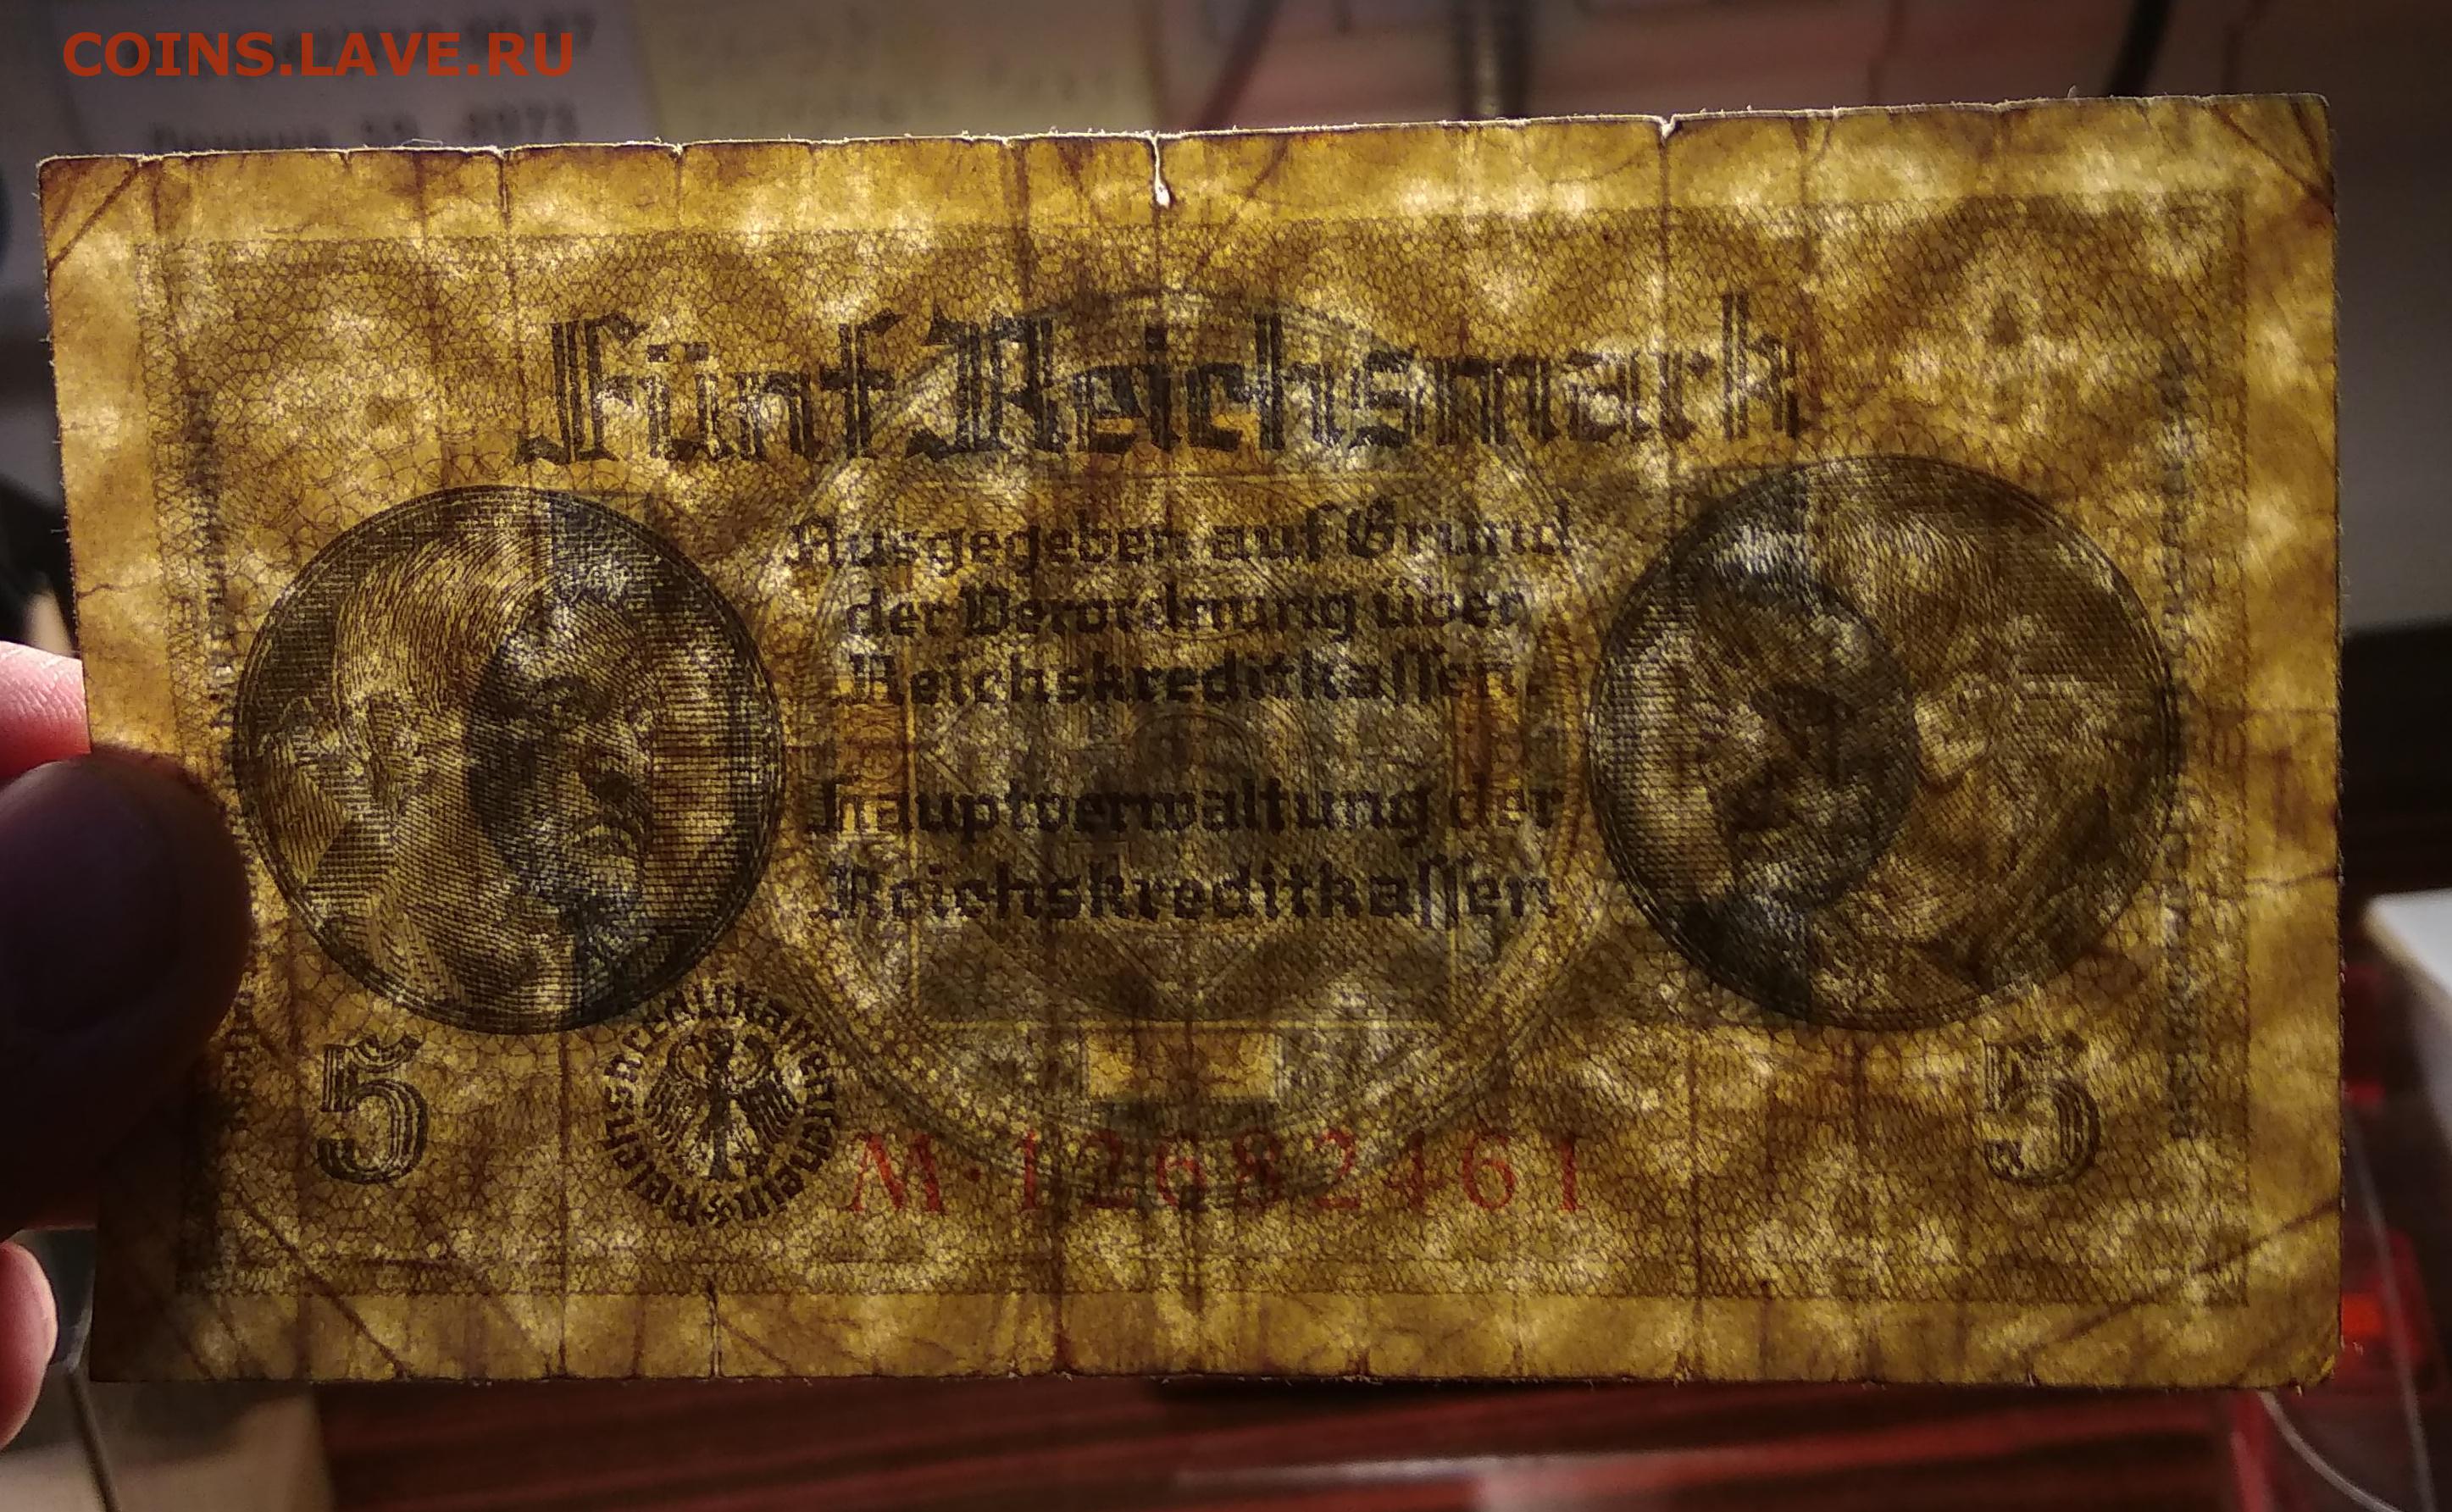 COINS.LAVE.RU
Fünf Reichsmark
Ausgegeben auf Grund
der Verordnung über
Reichskreditkaſſen.
Hauptverwaltung der
Reichskreditkaſſen
5
5
M·12682461